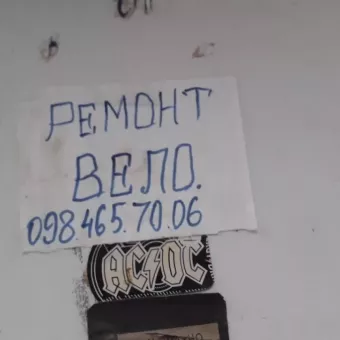 РЕМОНТ
ВЕЛО.
098.465.70.06
AC⚡DC